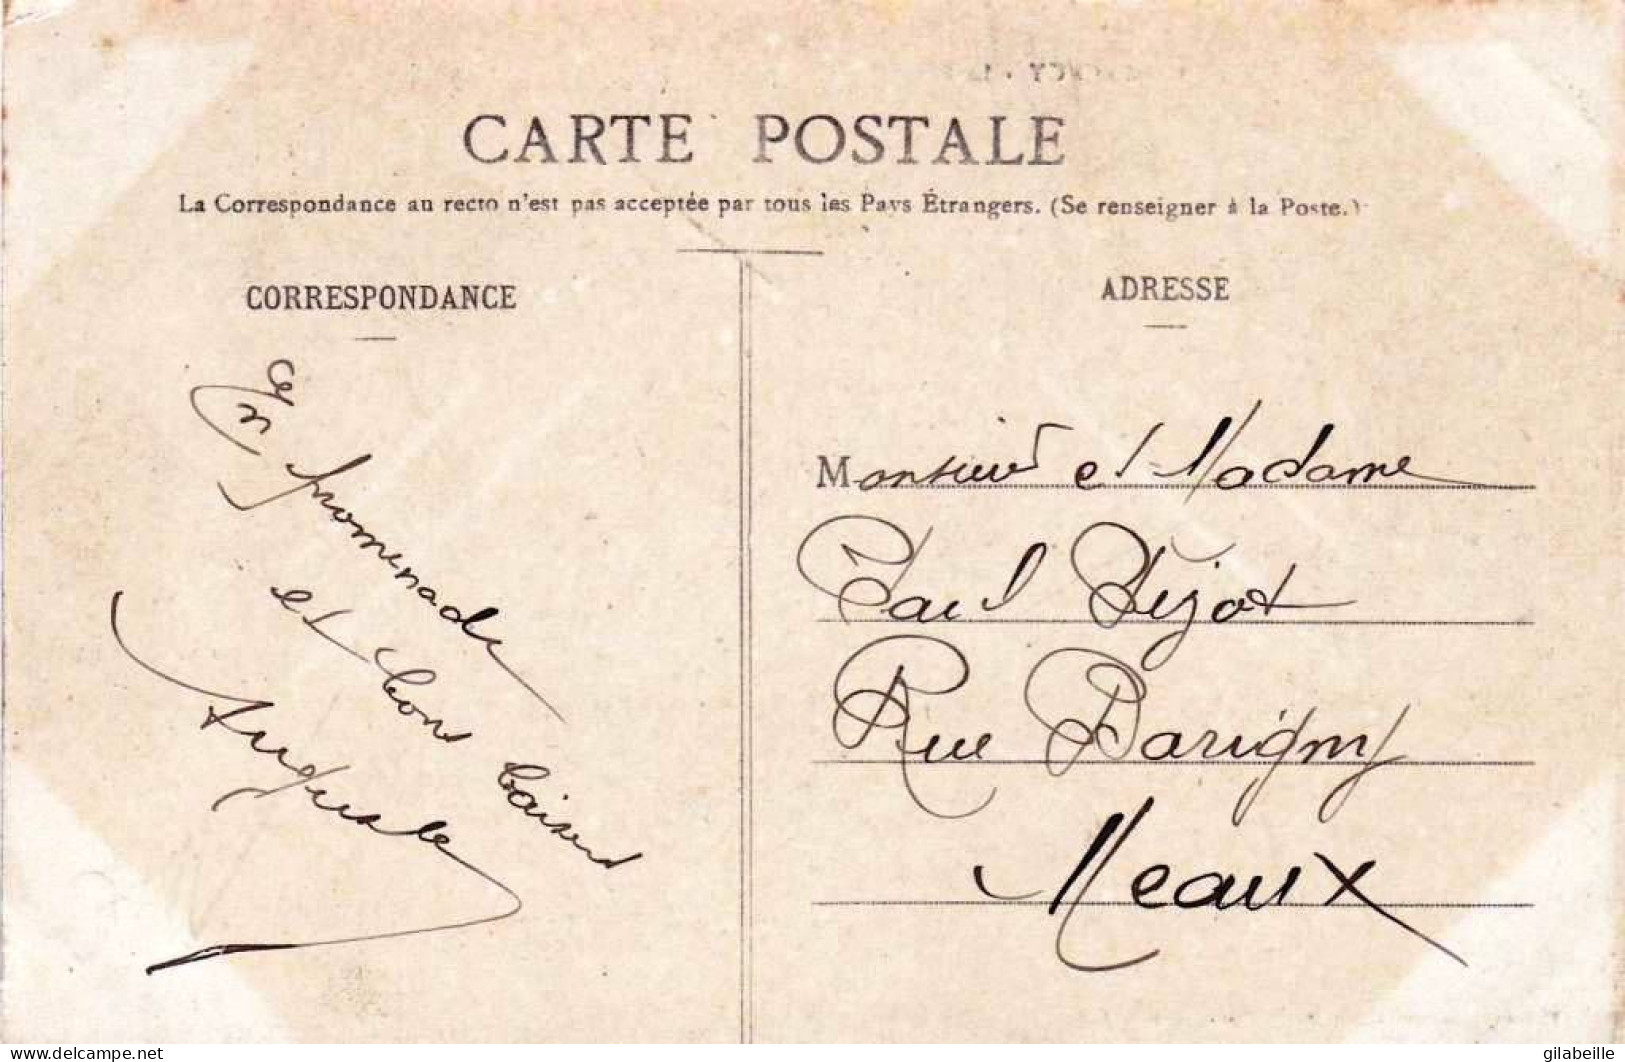 CARTE POSTALE
La Correspondance au recto n'est pas acceptée par tous les Pays Étrangers. (Se renseigner à la Poste.)
CORRESPONDANCE
En promenade
et bons baisers
ADRESSE
Monsieur et Madame
Paul
Rue Barigny
Meaux
www.delcampe.net
gilabeille